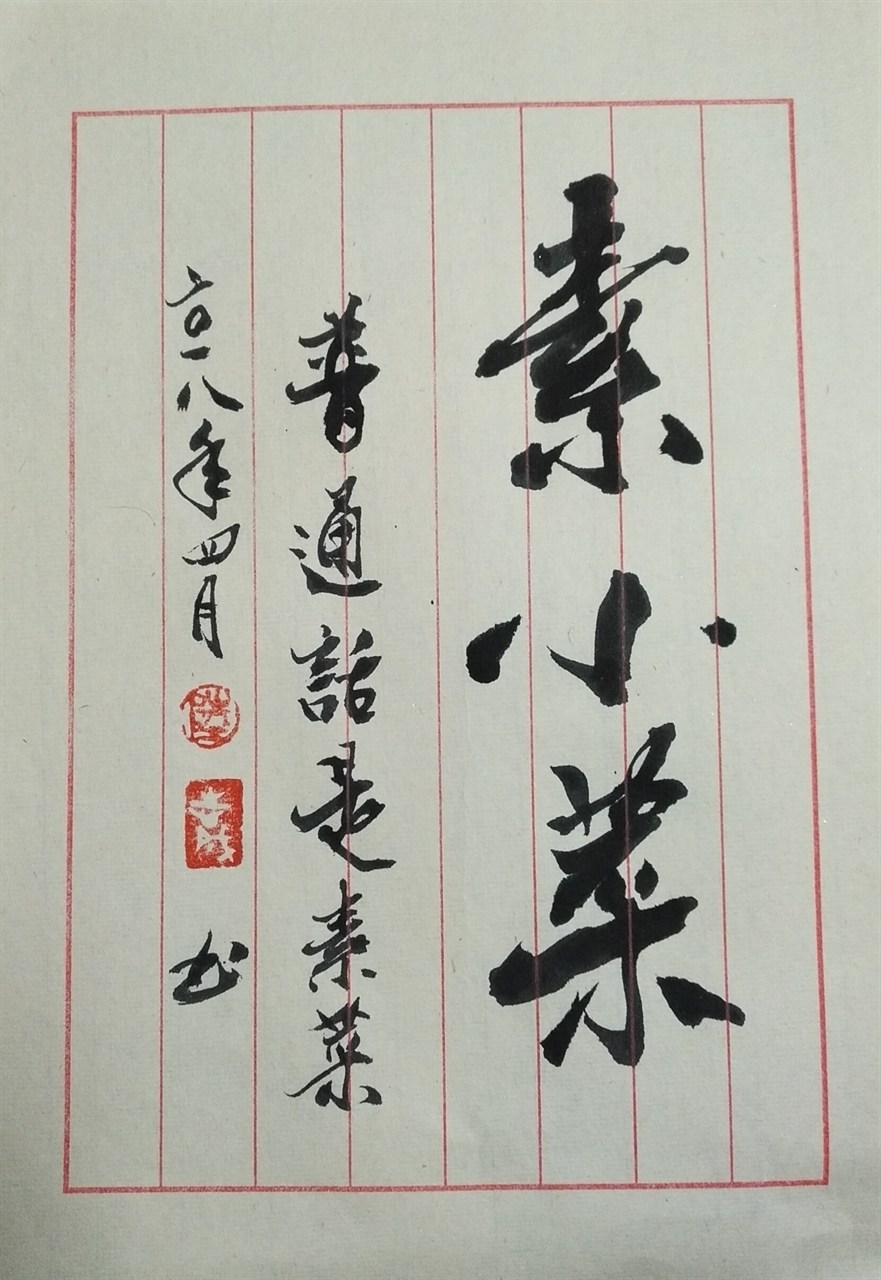 素小菜
普通話是素菜
二〇一八年四月
书